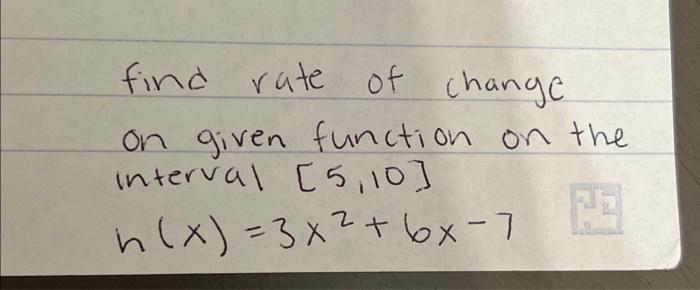 find rate of change
on given function on the
interval [5,10]
h(x) = 3x² + 6x - 7